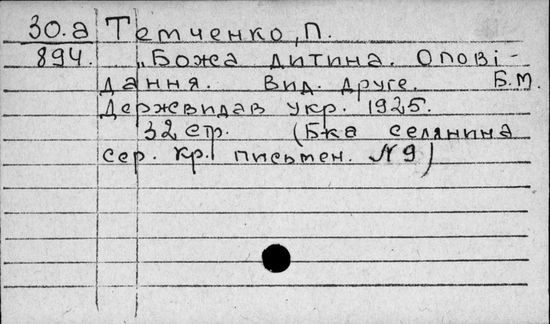 30.а Темченко, П.
894. „Божа дитина. Опові-
дання. Вид. друге. Б.М.
Державидав укр. 1925.
32 стр. (Бка селянина
сер. кр. письмен. N 9)